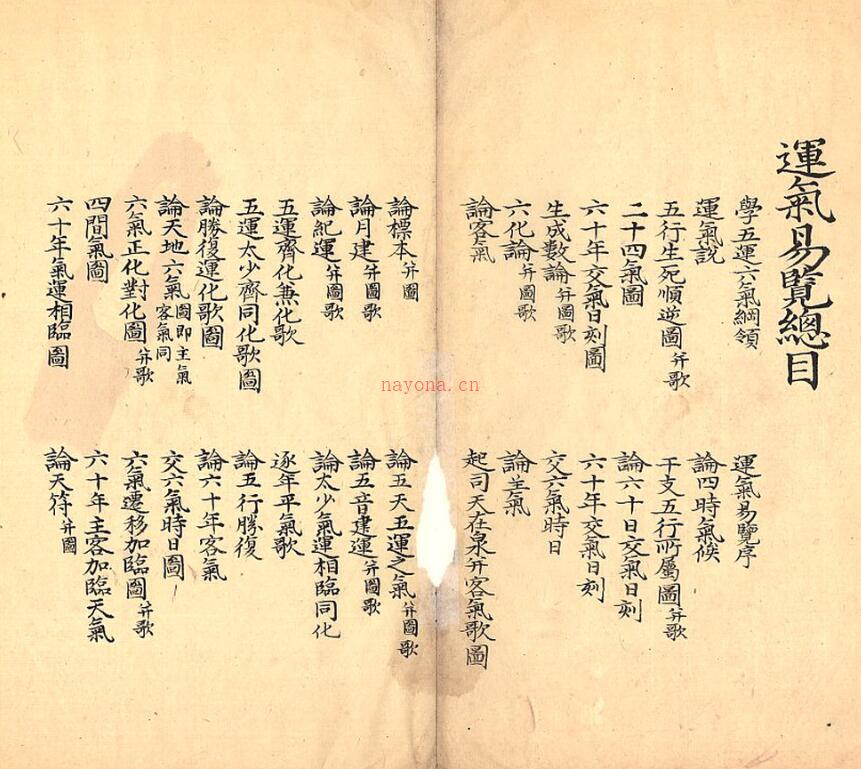 運氣易覽總目
學五運六氣綱領
運氣易覽序
運氣說
論四時氣候
五行生死順逆圖 并歌
干支五行所屬圖 并歌
二十四氣圖
論六十日交氣日刻
六十年交氣日刻圖
六十年交氣日刻
生成數論 并圖歌
交六氣時日
六化論 并圖歌
論主氣
論客氣
起司天在泉并客氣歌圖
論標本 并圖
論五天五運之氣 并圖歌
論月建 并圖歌
論五音建運 并圖歌
論紀運 并圖歌
論太少氣運相臨同化
五運齊化兼化歌
逐年平氣歌
五運太少齊同化歌圖
論五行勝復
論勝復運化歌圖
論六十年客氣
論天地六氣 圖即主氣客氣同
交六氣時日圖
六氣正化對化圖 并歌
六氣遷移加臨圖 并歌
四間氣圖
六十年主客加臨天氣
六十年氣運相臨圖
論天符 并圖
nayona.cn